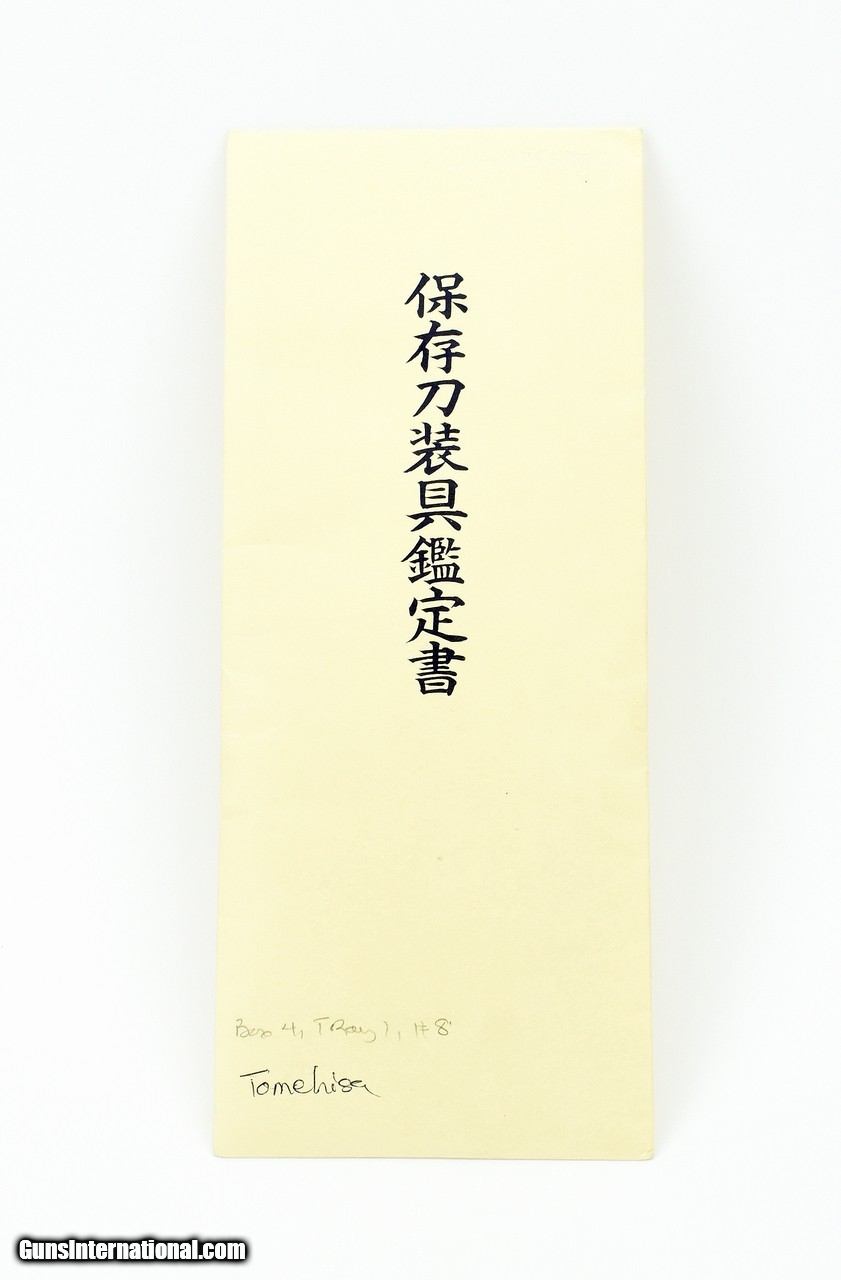 保存刀装具鑑定書
Box 4, TRay 1, #8
Tomehisa
GunsInternational.com